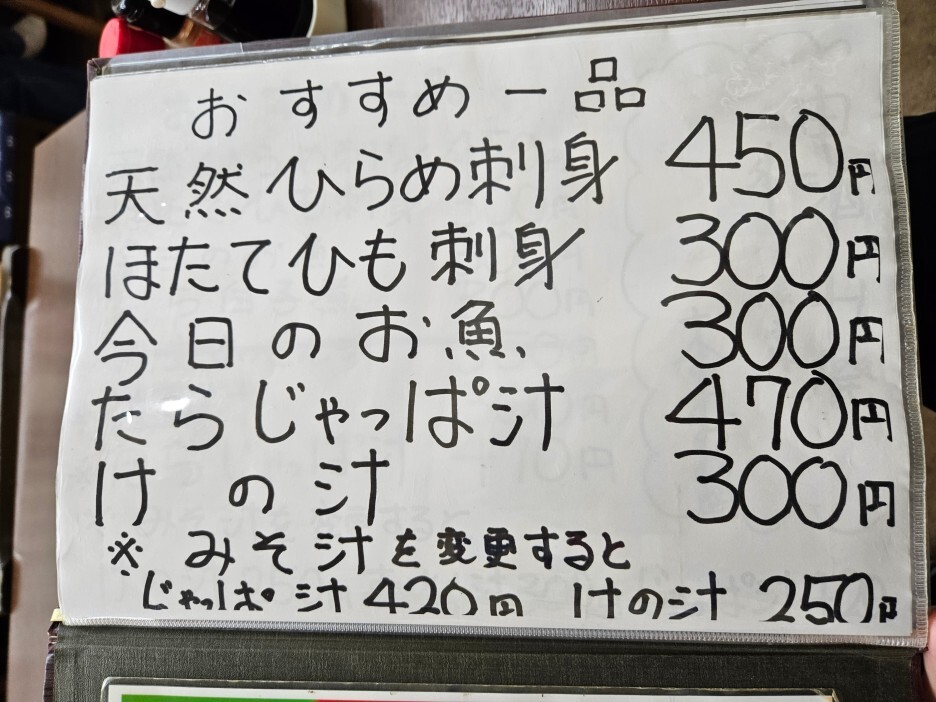 おすすめ一品
天然ひらめ刺身 450円
ほたてひも刺身 300円
今日のお魚 300円
たらじゃっぱ汁 470円
けの汁 300円
※ みそ汁を変更すると
じゃっぱ汁 420円 けの汁 250円